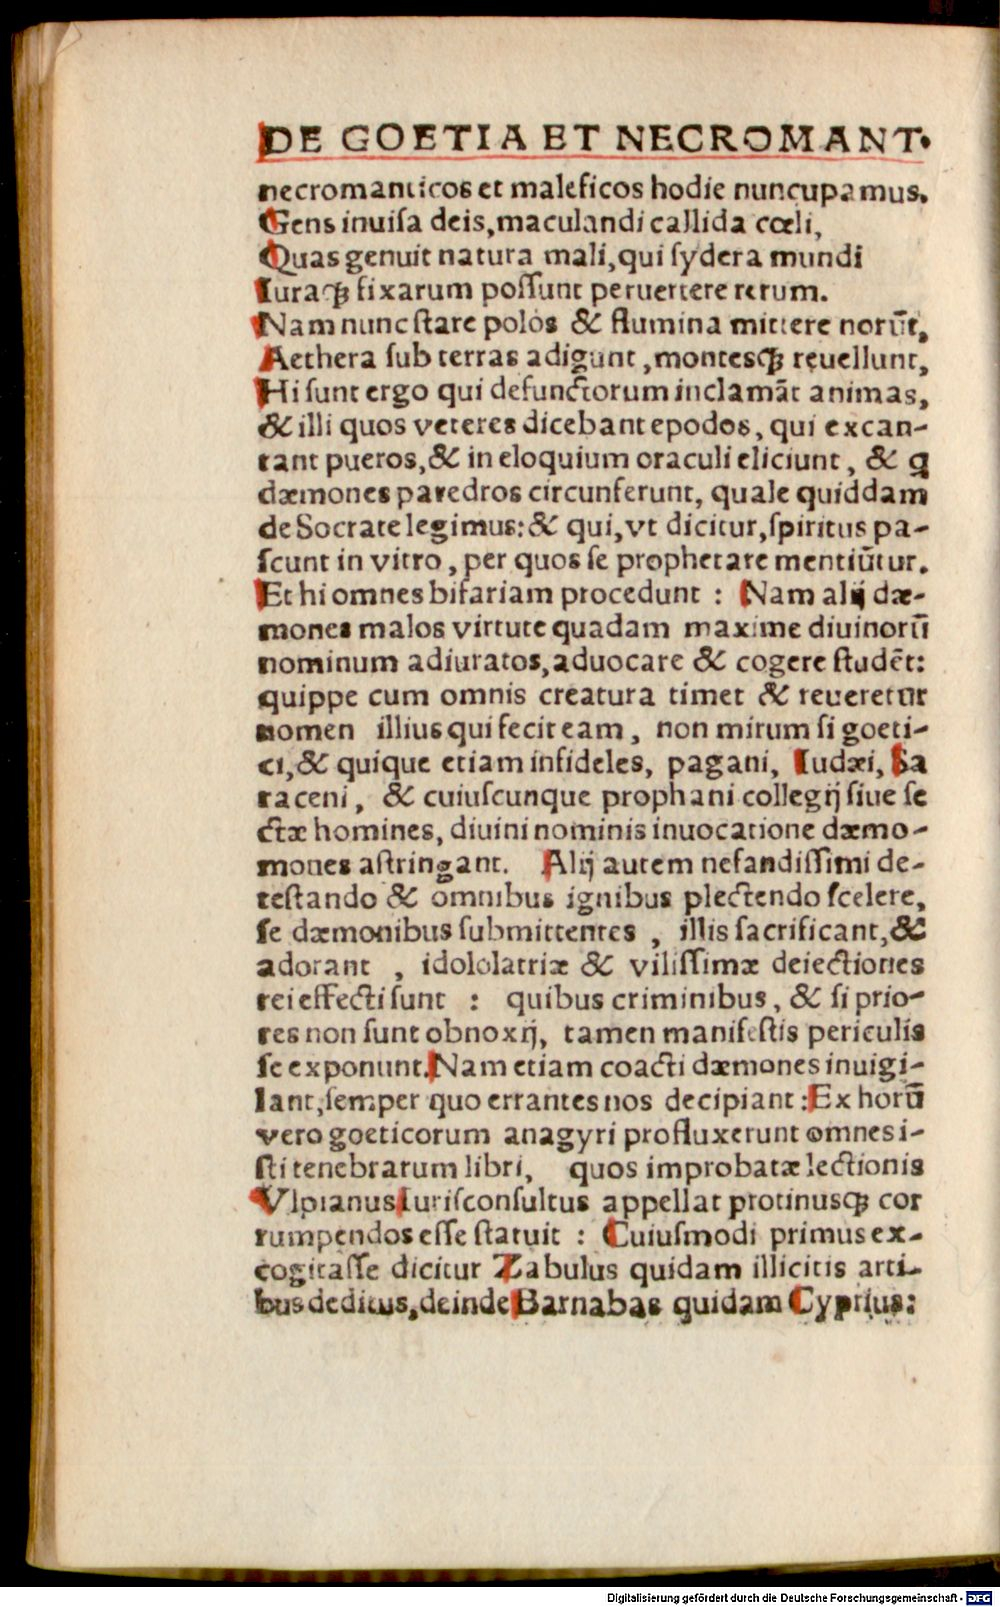 DE GOETIA ET NECROMANT.
necromanticos et maleficos hodie nuncupamus.
Gens inuiſa deis, maculandi callida cœli,
Quas genuit natura mali, qui ſydera mundi
Iuraqꝫ fixarum poſſunt peruertere rerum.
Nam nunc ſtare polos & flumina mittere norūt,
Aethera ſub terras adigunt, montesqꝫ reuellunt,
Hi ſunt ergo qui defunctorum inclamāt animas,
& illi quos veteres dicebant epodos, qui excan-
tant pueros, & in eloquium oraculi eliciunt, & q
dæmones paredros circunferunt, quale quiddam
de Socrate legimus: & qui, vt dicitur, ſpiritus pa-
ſcunt in vitro, per quos ſe prophetare mentiūtur.
Et hi omnes bifariam procedunt : Nam alij dæ-
mones malos virtute quadam maxime diuinorū
nominum adiuratos, aduocare & cogere ſtudēt:
quippe cum omnis creatura timet & reueretur
nomen illius qui fecit eam, non mirum ſi goeti-
ci, & quique etiam infideles, pagani, Iudæi, Sa
raceni, & cuiuſcunque prophani collegij ſiue ſe
ctæ homines, diuini nominis inuocatione dæmo-
mones aſtringant. Alij autem nefandiſſimi de-
teſtando & omnibus ignibus plectendo ſcelere,
ſe dæmonibus ſubmittentes , illis ſacrificant, &
adorant , idololatriæ & viliſſimæ deiectiones
rei effecti ſunt : quibus criminibus, & ſi prio-
res non ſunt obnoxij, tamen manifeſtis periculis
ſe exponunt. Nam etiam coacti dæmones inuigi-
lant, ſemper quo errantes nos decipiant : Ex horū
vero goeticorum anagyri profluxerunt omnes i-
ſti tenebrarum libri, quos improbatæ lectionis
Vlpianus Iuriſconſultus appellat protinusqꝫ cor
rumpendos eſſe ſtatuit : Cuiuſmodi primus ex-
cogitaſſe dicitur Zabulus quidam illicitis arti-
bus deditus, deinde Barnabas quidam Cyprius:
Digitalisierung gefördert durch die Deutsche Forschungsgemeinschaft - DFG